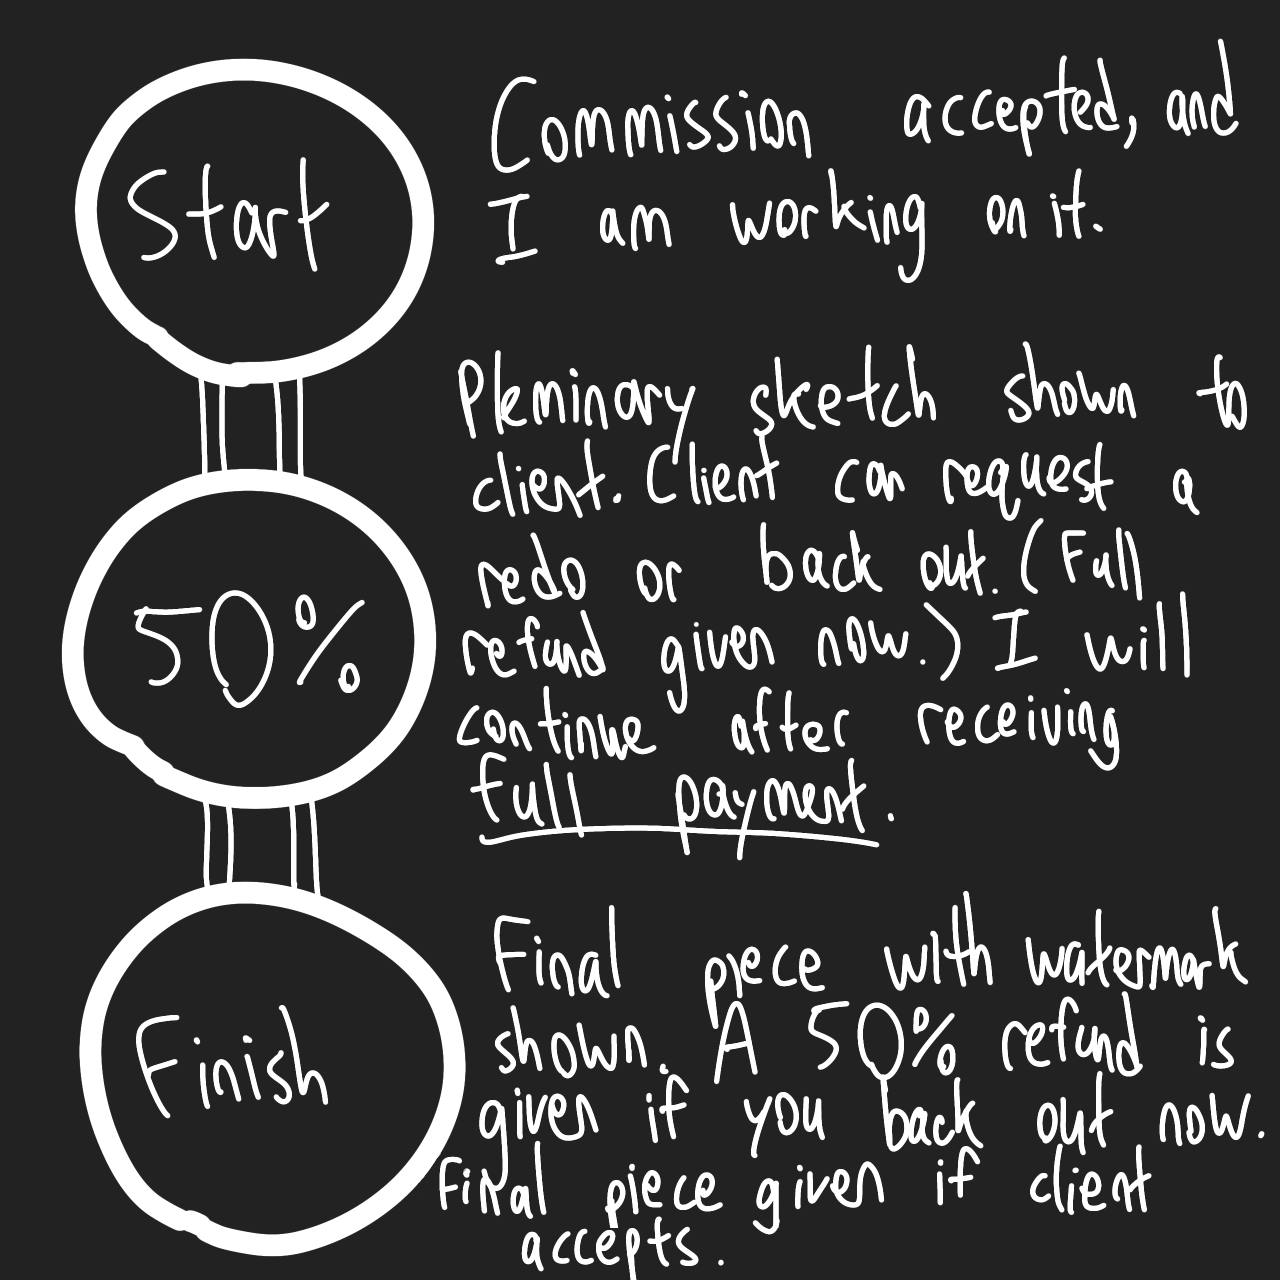 Start
Commission accepted, and
I am working on it.
50%
Pleminary sketch shown to
client. Client can request a
redo or back out. (Full
refund given now.) I will
continue after receiving
full payment.
Finish
Final piece with watermark
shown. A 50% refund is
given if you back out now.
Final piece given if client
accepts.